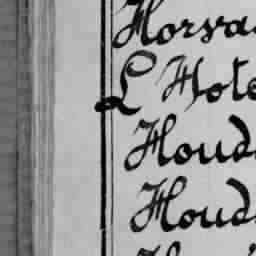 Horva
L Hote
Houd
Houd